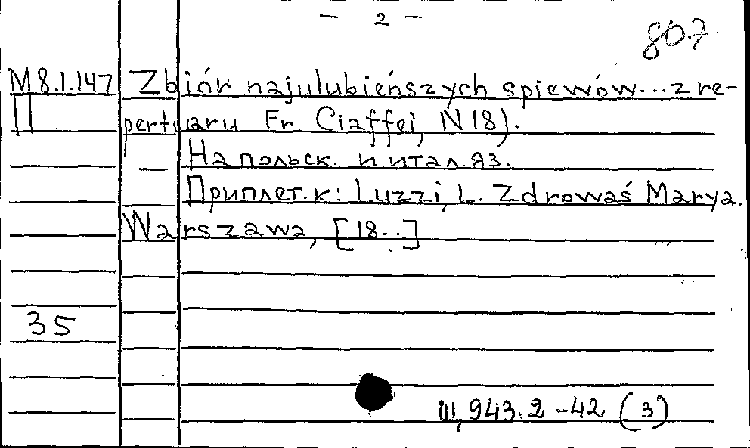 - 2 -
807
M 8.1.147 Zbiór najulubieńszych śpiewów... z re-
П pertuaru Fr. Ciaffei, N 18).
— На польск. и итал. яз.
Приплет. к: Luzzi, L. Zdrowaś Marya.
Warszawa, [18..]
35
Ш, 943.2 - 42 (3)